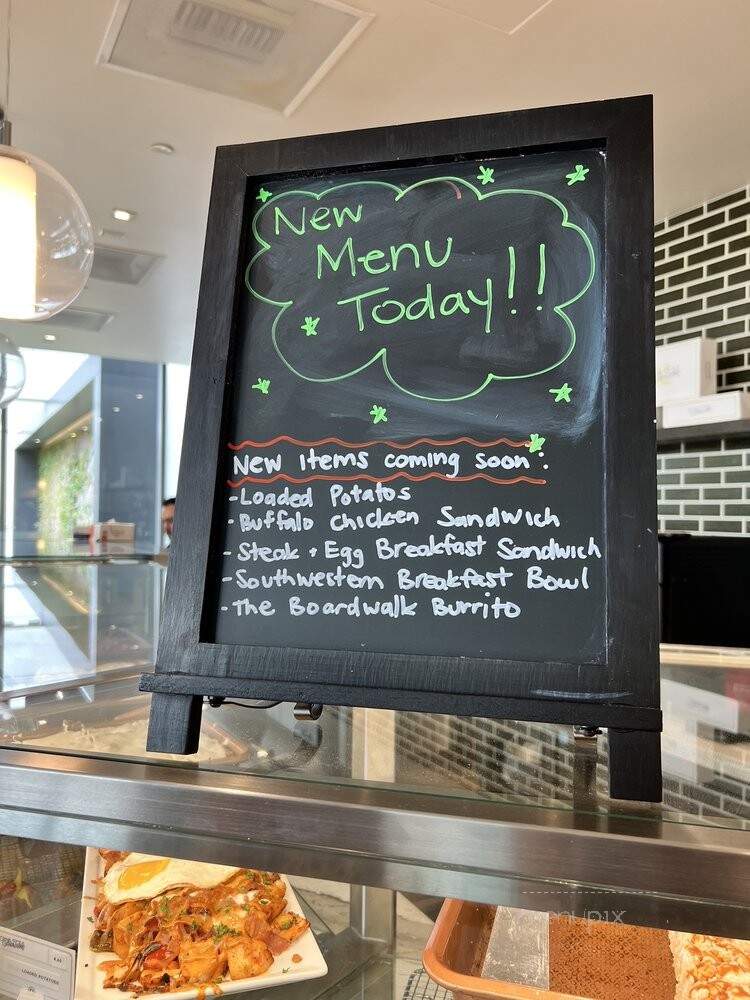 New
Menu
Today!!
New items coming soon:
-Loaded Potatos
-Buffalo Chicken Sandwich
-Steak + Egg Breakfast Sandwich
-Southwestern Breakfast Bowl
-The Boardwalk Burrito
LOADED POTATOES